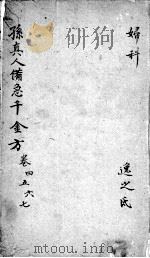 婦科
孫真人備急千金方 卷四五六七
逸之氏
www.mtoou.info